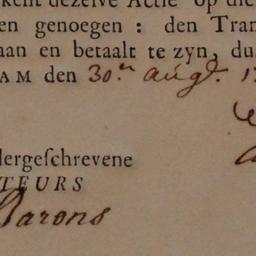 kent dezelve Actie op die
en genoegen : den Tran
aan en betaalt te zyn, du
AM den 30.en augt. 17
dergeſchrevene
TEURS
Barons